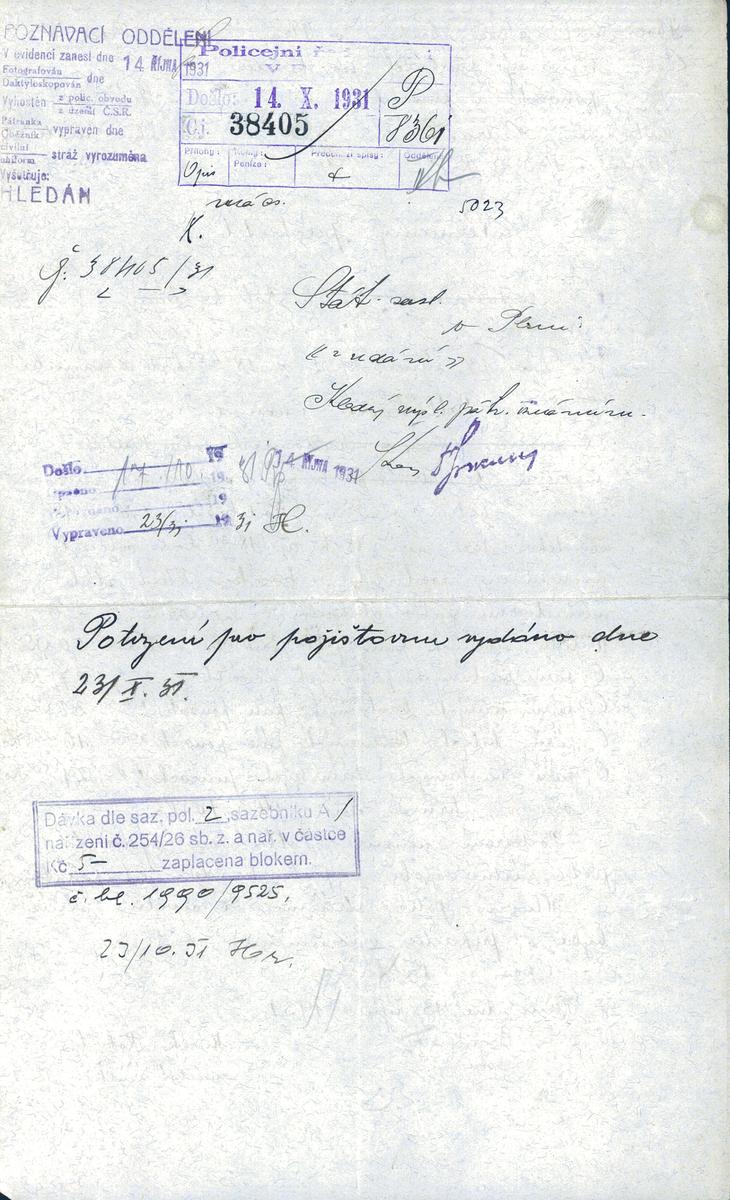 POZNÁVACÍ ODDĚLENÍ
V evidenci zanesl dne 14 ŘÍJNA 1931
Fotografován
Daktyloskopován dne
Vyhoštěn z polic. obvodu
z území Č.S.R.
Pátranka
Oběžník vypraven dne
civilní
uniform. stráž vyrozuměna
Vyšetřuje:
HLEDÁN
Policejní
Došlo: 14. X. 1931
Č.j. 38405
P
8361
Přílohy: Kolky: Předchozí spisy: Oddělení:
Opis Peníze:
5023
K.
Č: 38405/31
Stát. zast.
v Plzni:
« z udání »
výsl. pátr.
Došlo 17/10. 19 14 ŘÍJNA 1931
19
19
Vypraveno 23/ 19 31 H.
Potvrzení pro pojišťovnu vydáno dne
23/X. 31.
Dávka dle saz. pol. 2, sazebníku A/
nařízení č. 254/26 sb. z. a nař. v částce
Kč 5- zaplacena blokem.
č. bl. 1990/9525.
23/10. 31